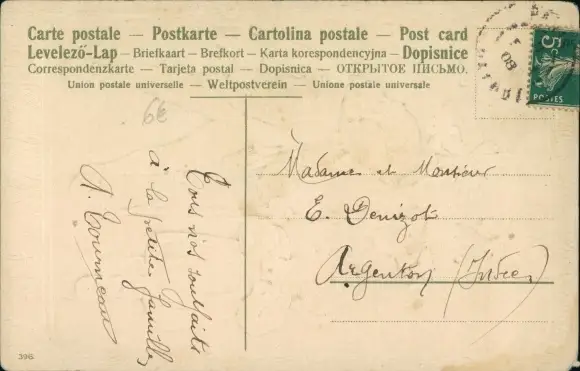 Carte postale – Postkarte – Cartolina postale – Post card
Levelező-Lap – Briefkaart – Brefkort – Karta korespondencyjna – Dopisnice
Correspondenzkarte – Tarjeta postal – Dopisnica – ОТКРЫТОЕ ПИСЬМО.
Union postale universelle – Weltpostverein – Unione postale universale
6€
Tous nos souhaits
à la petite famille
A. Tourneau
Madame et Monsieur
E. Denizot
Argenton (Indre)
5c
POSTES
08
396